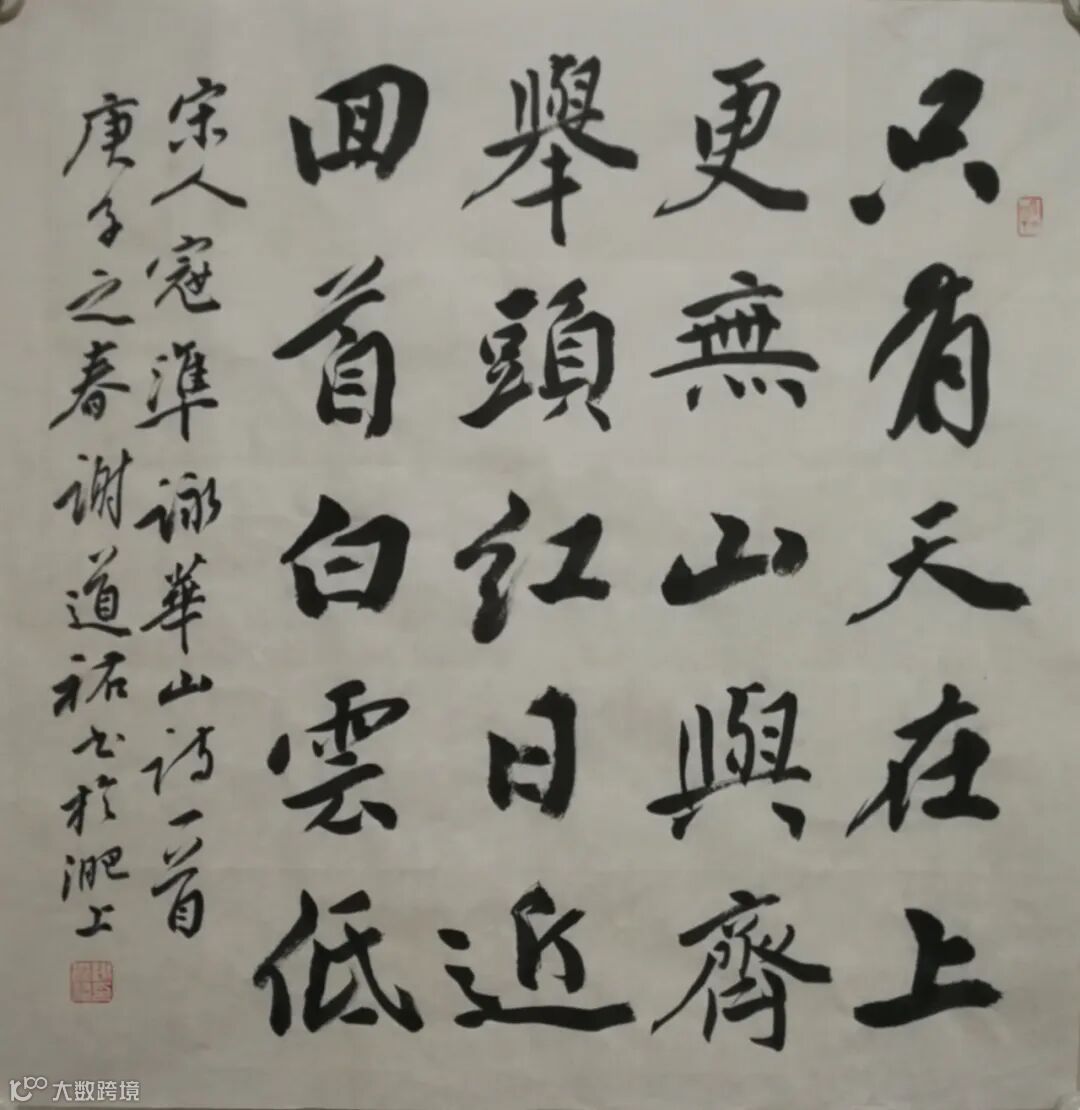 只有天在上
更無山與齊
舉頭紅日近
回首白雲低
宋人寇準詠華山詩一首
庚子之春謝道祐書於淝上
大数跨境